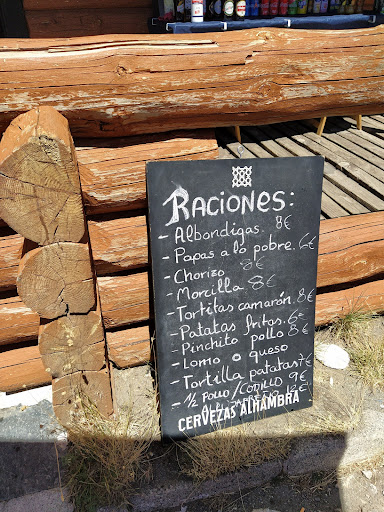 RACIONES:
- Albondigas. 8€
- Papas a lo pobre. 6€
- Chorizo 8€
- Morcilla 8€
- Tortitas camarón. 8€
- Patatas fritas. 6€
- Pinchito pollo 8€
- Lomo o queso
- Tortilla patatas 7€
- 1/2 POLLO/CODILLO 9€
12€
CERVEZAS ALHAMBRA